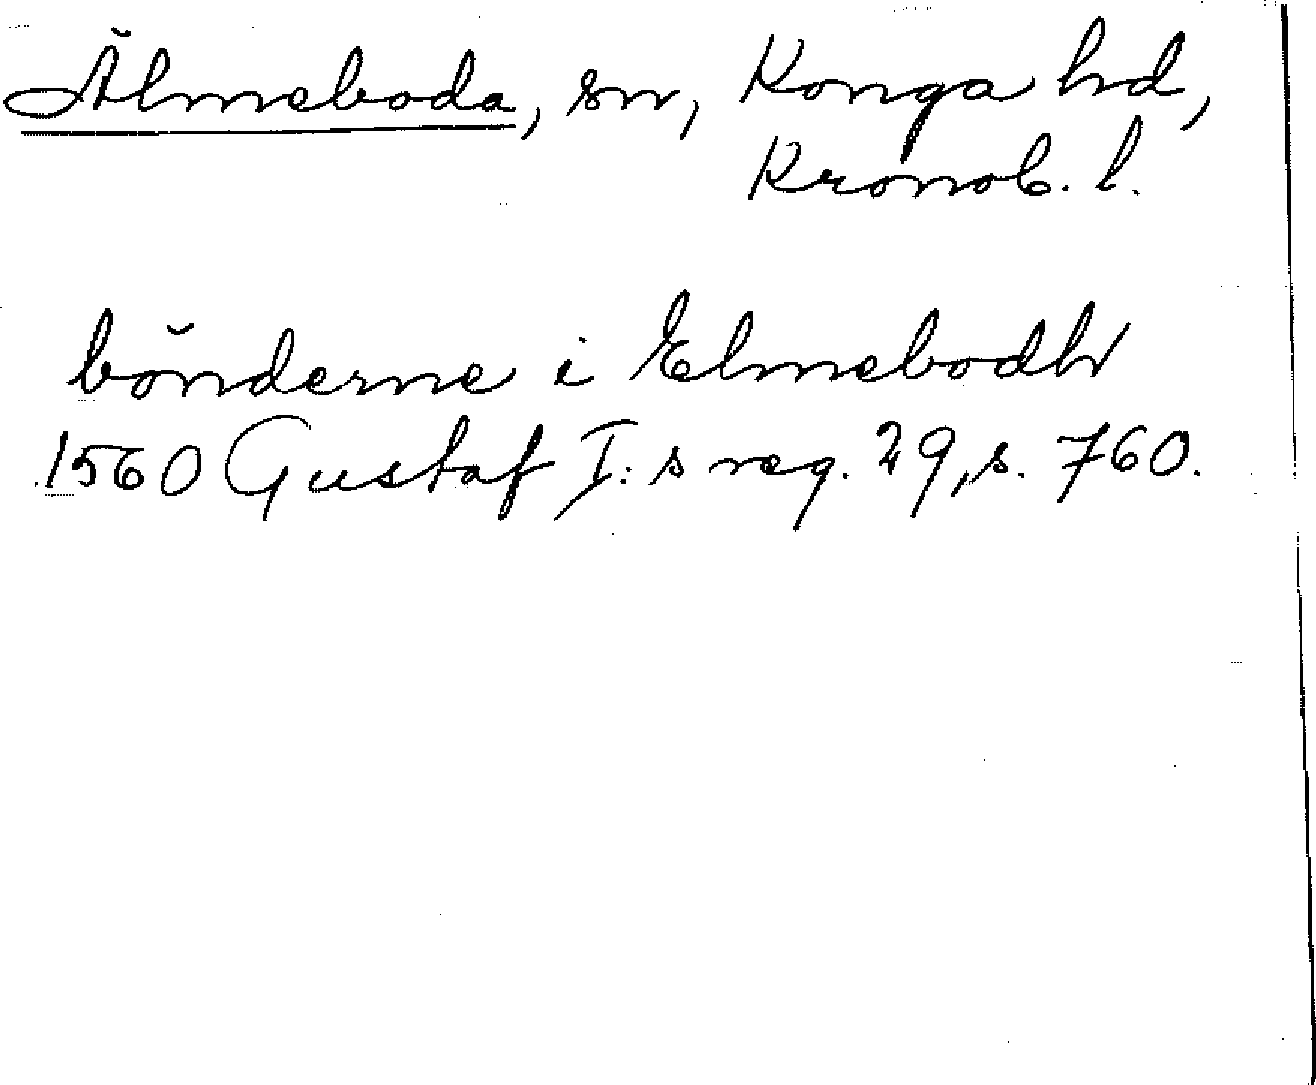 Älmeboda, sn, Konga hd,
Kronob. l.
bönderne i Elmebodh
1560 Gustaf I:s reg. 29, s. 760.